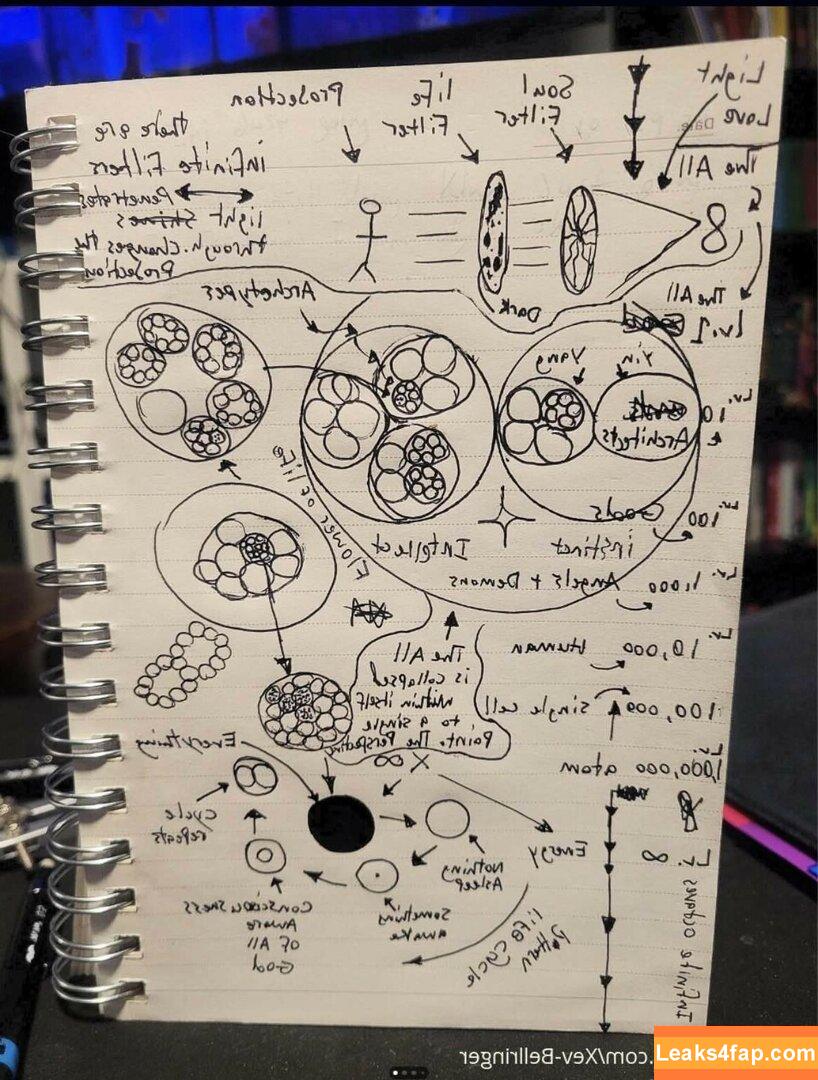 Light
Love
The All
Soul
Filter
life
Filter
Projection
there are
infinite Filters
light Penetrates
through. changes the
Projection
8
Date:
The All
Lv. 1
Dark
Archetypes
Yin
Yang
Lv. 10
Architects
Lv. 100
Gods
instinct
Intellect
Flower of life
Lv. 1,000
Angels + Demons
Lv. 10,000
Human
Lv. 100,000
single cell
Lv. 1,000,000
atom
The All
is collapsed
within itself
to a single
Point. The Perspective
X ∞
Everything
cycle
repeats
Energy
Nothing
Asleep
Something
awake
Consciousness
Aware
OF All
God
life cycle
Pattern
8
Infinite octaves
.com/Xev-Bellringer
Leaks4fap.com